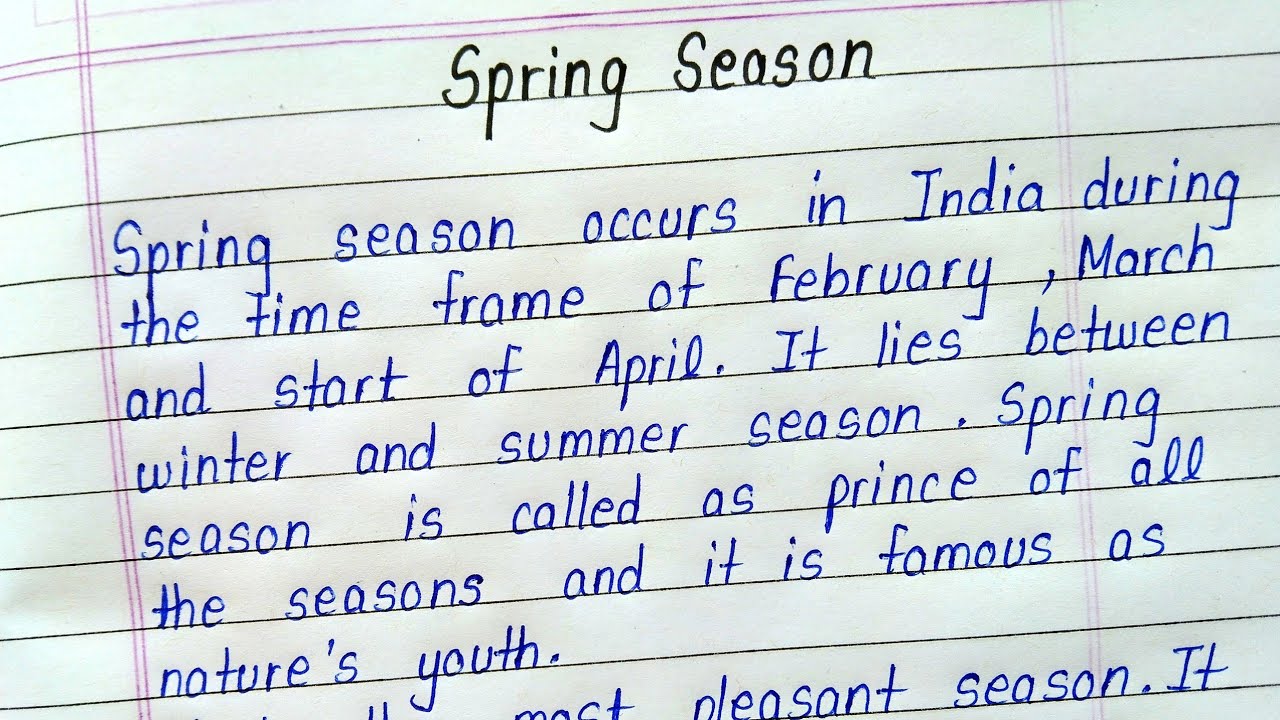 Spring Season
Spring season occurs in India during
the time frame of February, March
and start of April. It lies between
winter and summer season. Spring
season is called as prince of all
the seasons and it is famous as
nature's youth.
most pleasant season. It